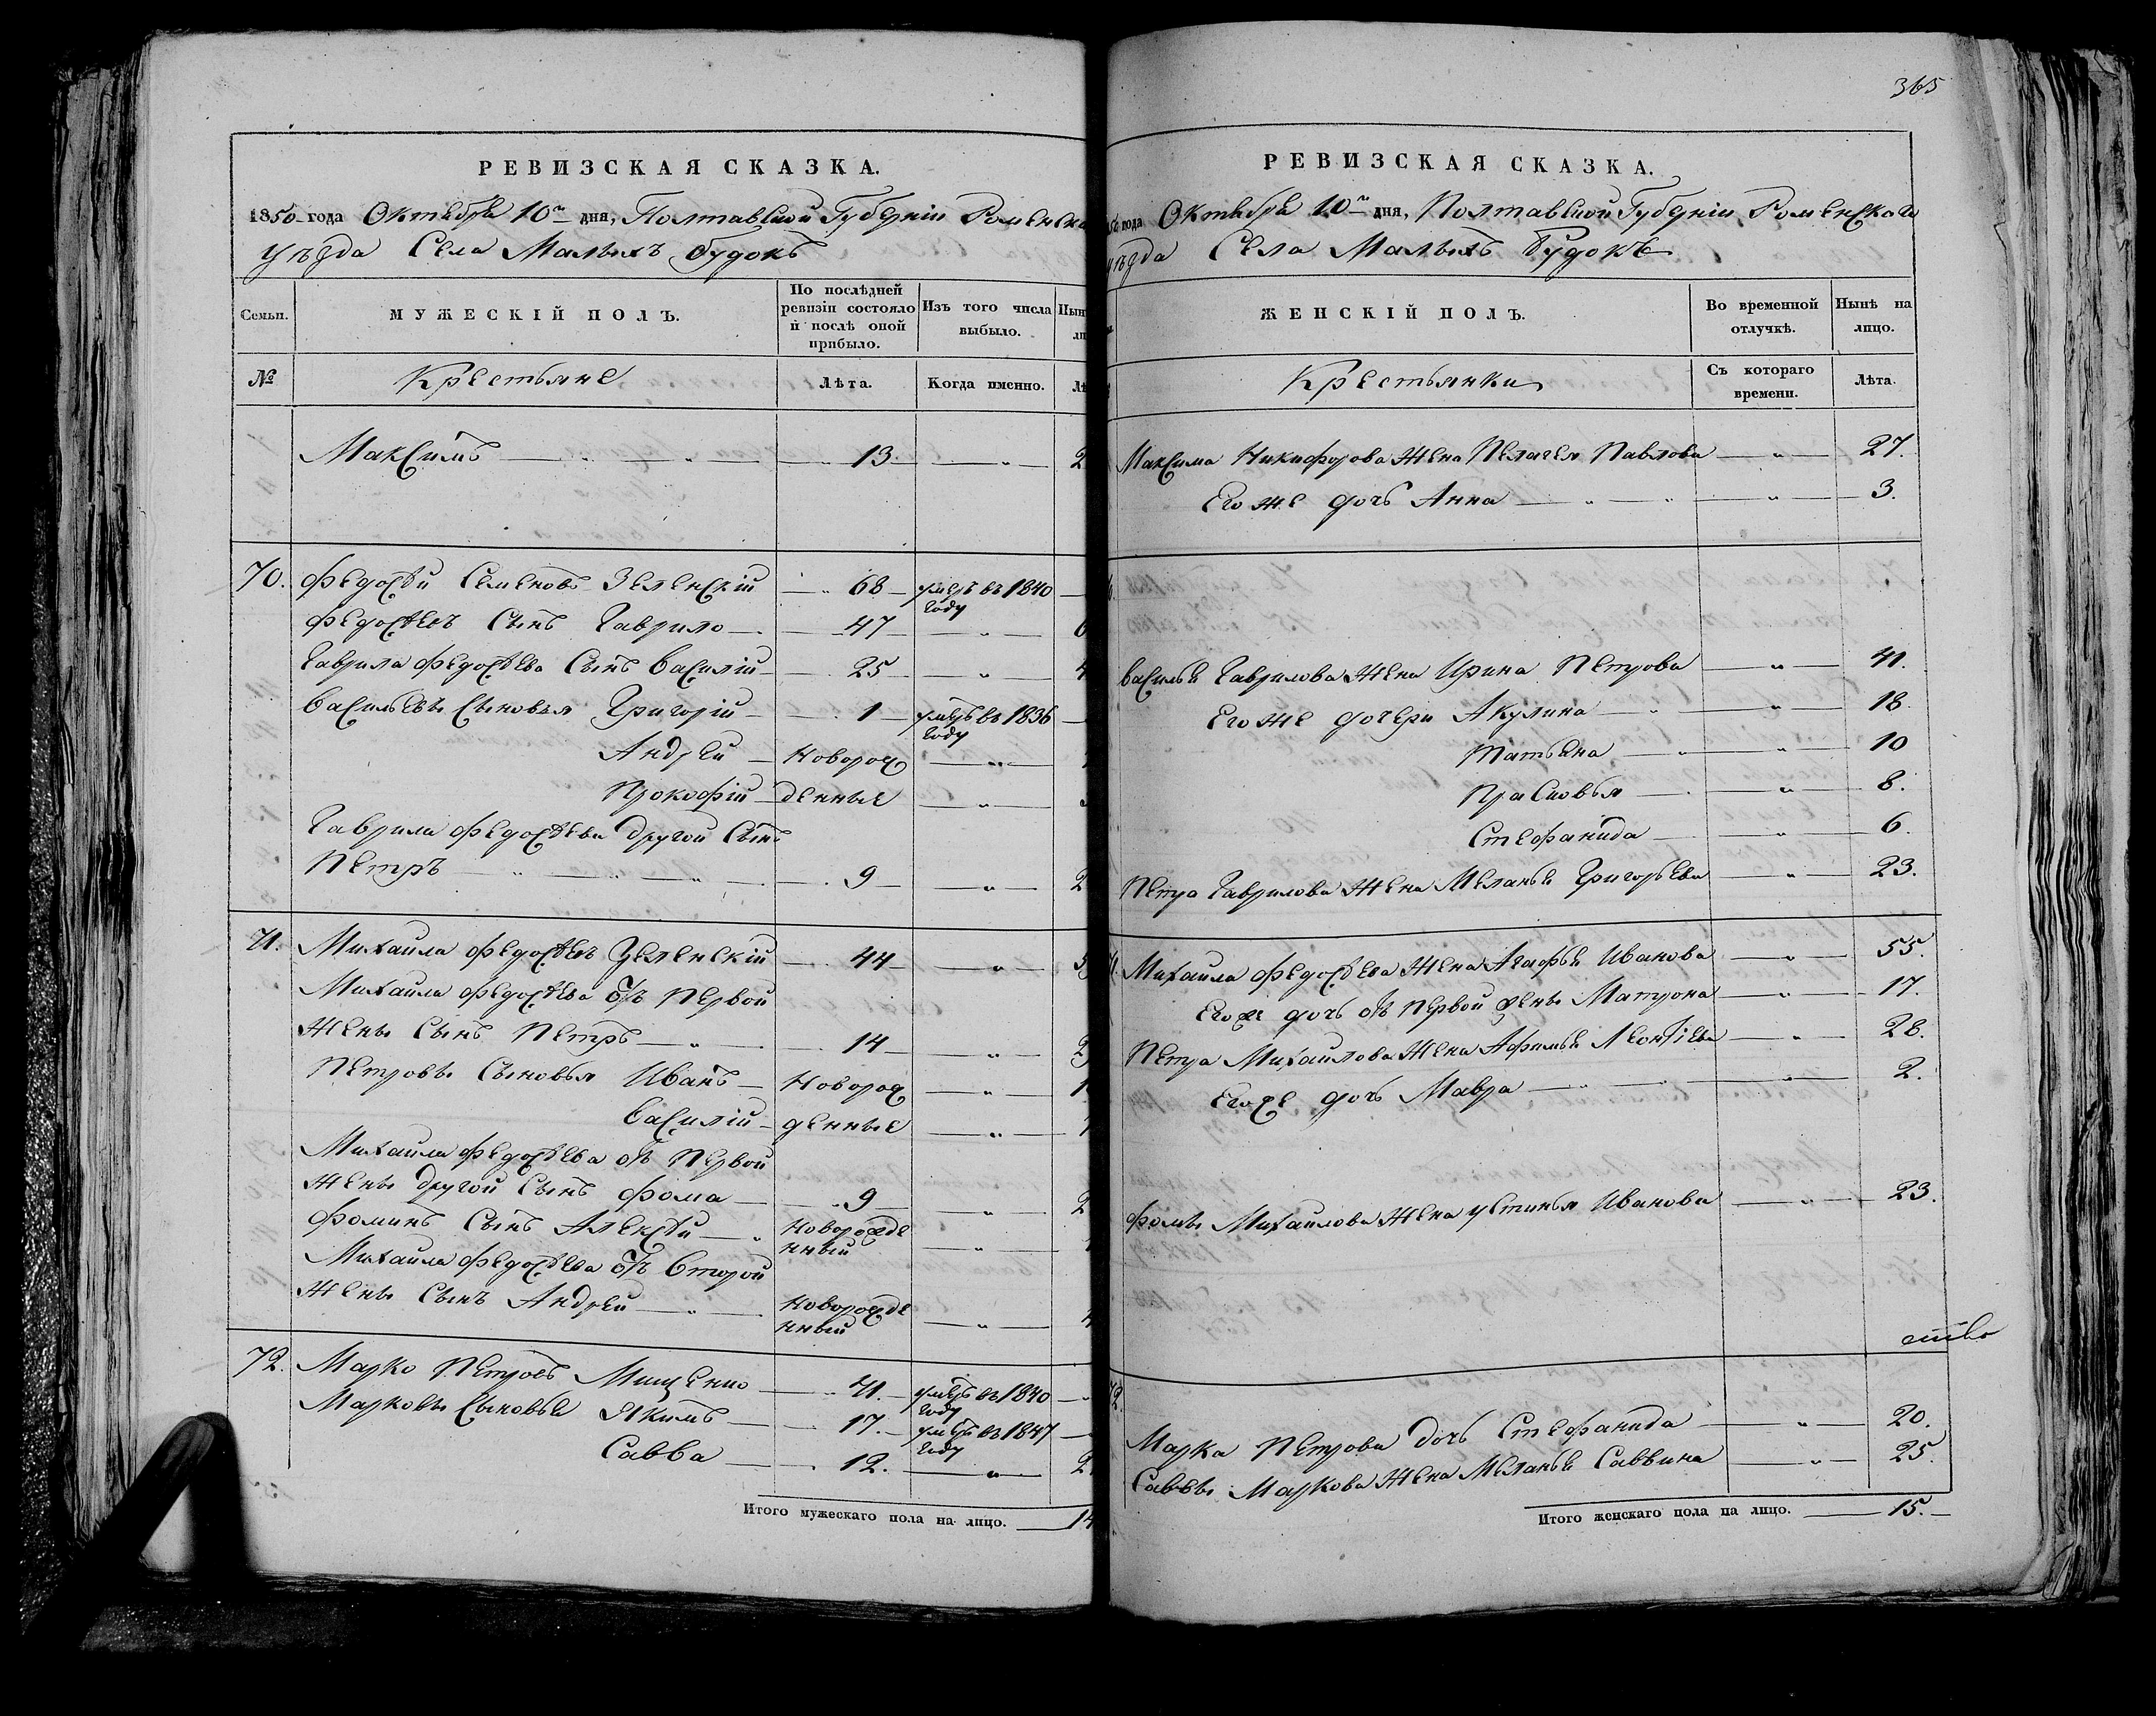 РЕВИЗСКАЯ СКАЗКА.
1850 года Октября 10го дня, Полтавской Губерніи Роменска
Уѣзда Села Малыхъ Будокъ
Семьи.
МУЖЕСКІЙ ПОЛЪ.
По послѣдней ревизіи состояло и послѣ оной прибыло.
Изъ того числа выбыло.
№
Крестьяне
Лѣта.
Когда именно.
Максимъ — 13. — 2
70. Федосѣй Семеновъ Зеленскій — 68 — умеръ въ 1840 году
Федосѣевъ Сынъ Гаврило — 47 — 6
Гаврила Федосѣева Сынъ Василій — 25 — 4
Васильевы Сыновья Григорій — 1 — умеръ въ 1836 году
Андрей — Новорож
Прокофій — денные
Гаврила Федосѣева другой Сынъ
Петръ — 9 — 2
71. Михайла Федосѣевъ Зеленскій — 44
Михайла Федосѣева отъ Первой
Жены Сынъ Петръ — 14 — 2
Петровы Сыновья Иванъ — Новорож
Василій — денные
Михайла Федосѣева отъ Первой
Жены другой Сынъ Фома — 9 — 2
Фоминъ Сынъ Алексѣй — Новорожде нный
Михайла Федосѣева отъ Второй
Жены Сынъ Андрей — Новорожде нный
72. Марко Петровъ Мищенко — 41. — умеръ въ 1840 году
Марковы Сыновья Якимъ — 17. — умеръ въ 1847 году
Савва — 12. — 2
Итого мужескаго пола на лицо. 14
365
РЕВИЗСКАЯ СКАЗКА.
года Октября 10го дня, Полтавской Губерніи, Роменскаго
уѣзда Села Малыхъ Будокъ
ЖЕНСКІЙ ПОЛЪ.
Во временной отлучкѣ.
Нынѣ на лицо.
Крестьянки
Съ котораго времени.
Лѣта.
Максима Никифорова Жена Пелагея Павлова — 27.
Его же дочь Анна — 3.
Василья Гаврилова Жена Ирина Петрова — 41.
Его же дочери Акулина — 18.
Татьяна — 10
Прасковья — 8.
Стефанида — 6.
Петра Гаврилова Жена Меланья Григорьева — 23.
Михайла Федосѣева Жена Агафья Иванова — 55.
Его же дочь отъ первой жены Матрона — 17.
Петра Михайлова Жена Афимья Леонтіева — 28.
Его же дочь Мавра — 2.
Фомы Михайлова Жена Устинья Иванова — 23.
72.
Марка Петрова дочь Стефанида — 20.
Саввы Маркова Жена Меланья Саввина — 25.
Итого женскаго пола на лицо. — 15.